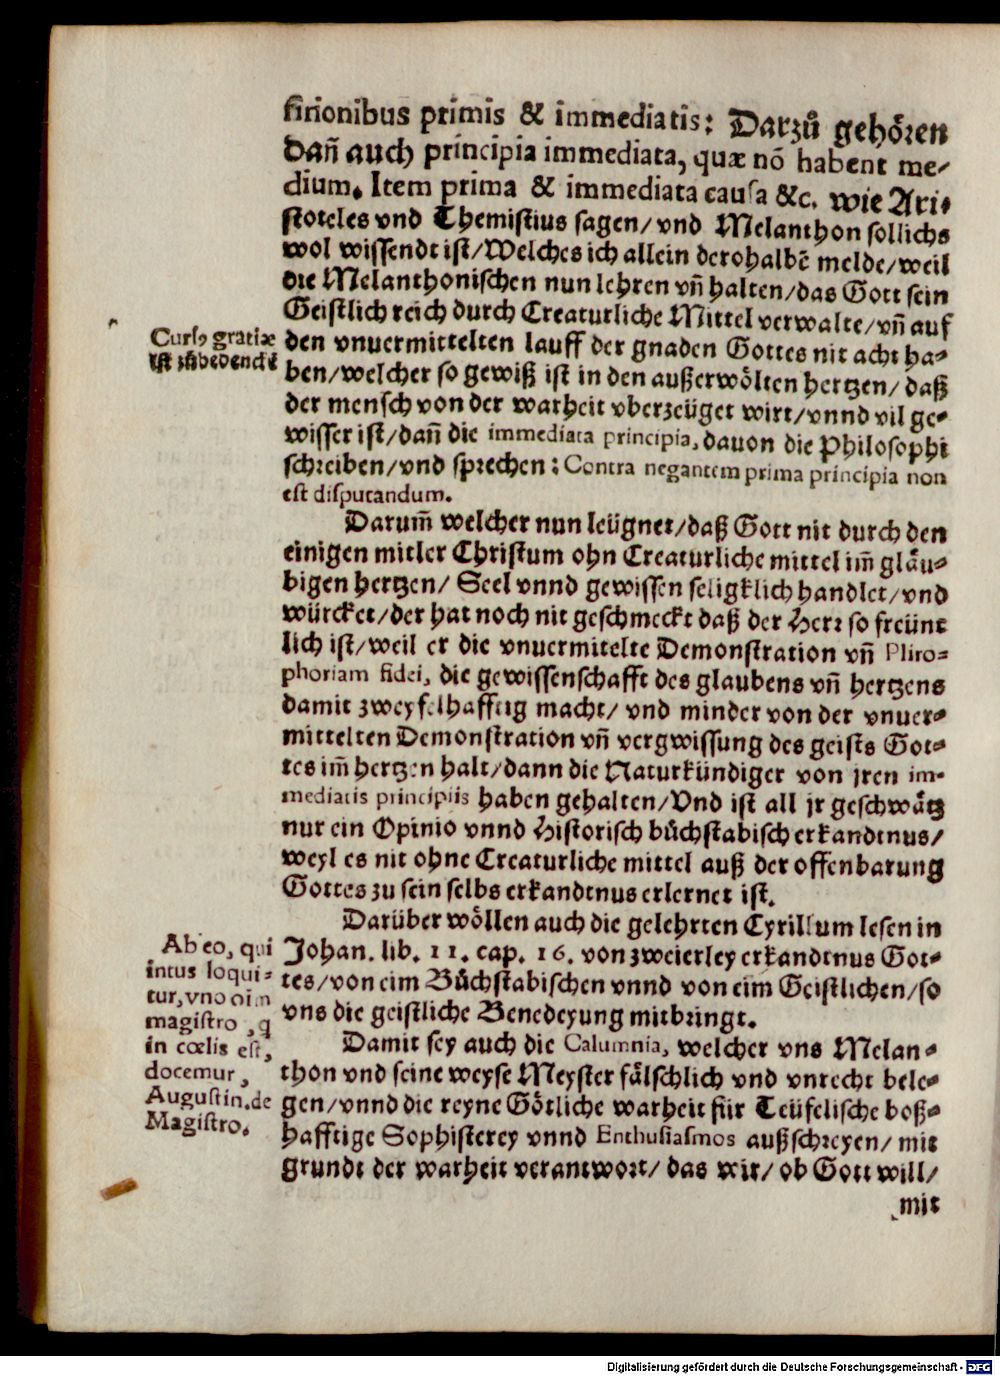 finionibus primis & immediatis: Darzů gehören
dañ auch principia immediata, quæ nõ habent me-
dium. Item prima & immediata causa &c. wie Ari-
stoteles vnd Themistius sagen/ vnd Melanthon sollichs
wol wissendt ist/ Welches ich allein derohalbẽ melde/ weil
die Melanthonischen nun lehren vñ halten/ das Gott sein
Geistlich reich durch Creaturliche Mittel verwalte/ vñ auf
den vnuermittelten lauff der gnaden Gottes nit acht ha-
ben/ welcher so gewiß ist in den außerwölten hertzen/ daß
der mensch von der warheit vberzeüget wirt/ vnnd vil ge-
wisser ist/ dañ die immediata principia, dauon die Philosophi
schreiben/ vnd sprechen: Contra negantem prima principia non
est disputandum.
Cursꝰ gratiæ
ist zůbedenckẽ
Darum̃ welcher nun leügnet/ daß Gott nit durch den
einigen mitler Christum ohn Creaturliche mittel im̃ gläu-
bigen hertzen/ Seel vnnd gewissen seligklich handlet/ vnd
würcket/ der hat noch nit geschmeckt daß der Herr so freünt
lich ist/ weil er die vnuermitelte Demonstration vñ Pliro-
phoriam fidei, die gewissenschafft des glaubens vñ hertzens
damit zweyfelhafftig macht/ vnd minder von der vnuer-
mittelten Demonstration vñ vergwissung des geists Got-
tes im̃ hertzen halt/ dann die Naturkündiger von jren im-
mediatis principiis haben gehalten/ Vnd ist all jr geschwätz
nur ein Opinio vnnd Historisch bůchstabisch erkandtnus/
weyl es nit ohne Creaturliche mittel auß der offenbarung
Gottes zu sein selbs erkandtnus erlernet ist.
Darüber wöllen auch die gelehrten Cyrillum lesen in
Johan. lib. 11. cap. 16. von zweierley erkandtnus Got-
tes/ von eim Bůchstabischen vnnd von eim Geistlichen/ so
vns die geistliche Benedeyung mitbringt.
Ab eo, qui
intus loqui-
tur, vno oim
magistro, q
in cœlis est,
docemur,
Augustin. de
Magistro.
Damit sey auch die Calumnia, welcher vns Melan-
thon vnd seine weyse Meyster fälschlich vnd vnrecht bele-
gen/ vnnd die reyne Götliche warheit für Teüfelische boß-
hafftige Sophisterey vnnd Enthusiasmos außschreyen/ mit
grundt der warheit verantwort/ das wir/ ob Gott will/
mit
Digitalisierung gefördert durch die Deutsche Forschungsgemeinschaft - DFG